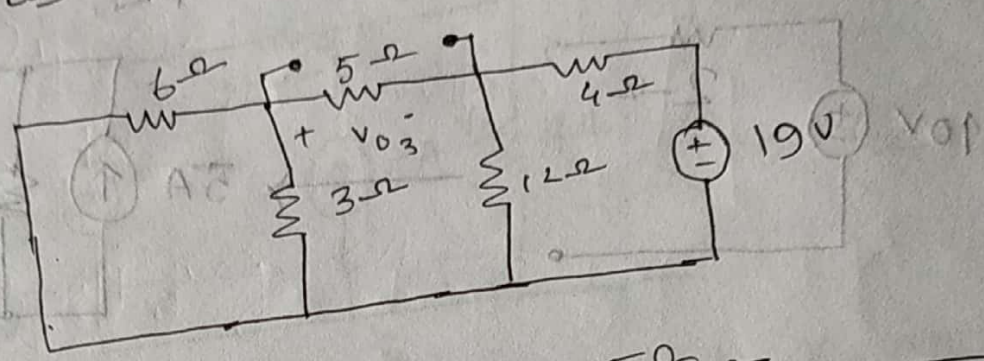 6Ω
5Ω
4Ω
+ Vo3 -
3Ω
12Ω
+
-
19V